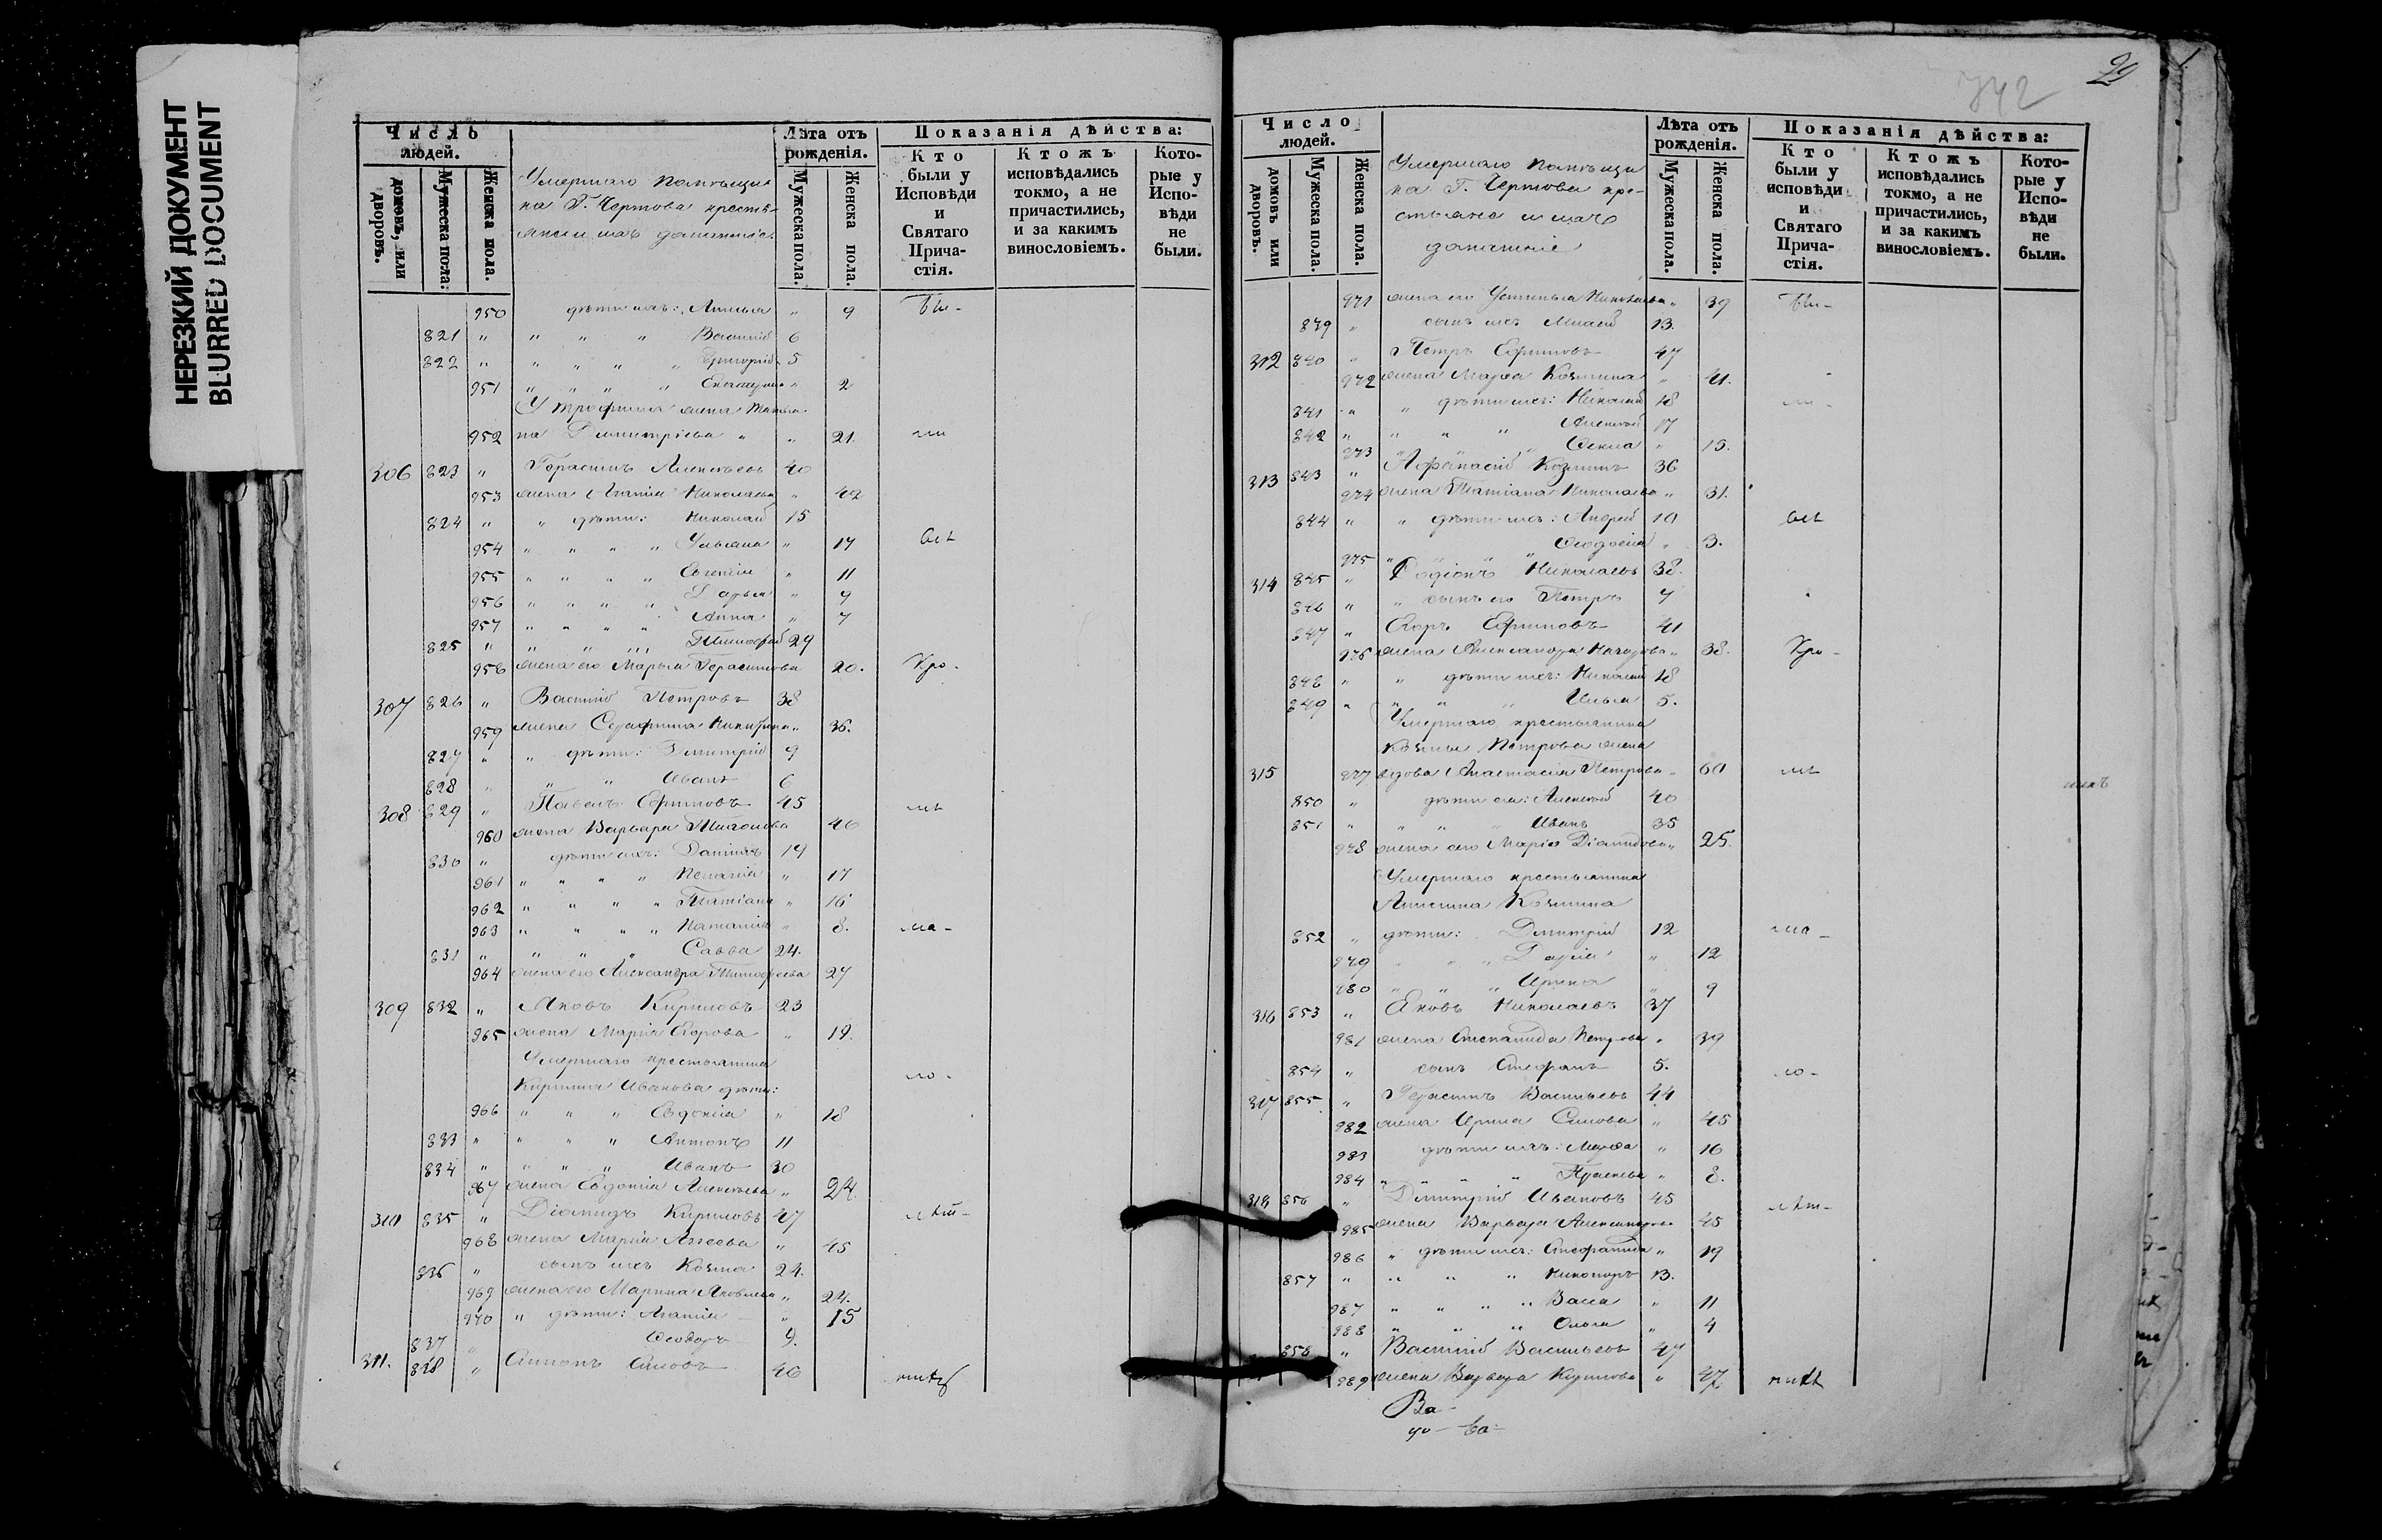 НЕРЕЗКИЙ ДОКУМЕНТ
BLURRED DOCUMENT
Число людей.
домовъ, или дворовъ.
Мужеска пола.
Женска пола.
Умершаго помѣщи-
ка Г. Чертова кресть-
яне и ихъ домашніе
Лѣта отъ рожденія.
Мужеска пола.
Женска пола.
Показанія дѣйства:
Кто были у Исповѣди и Святаго Прича-стія.
Ктожъ исповѣдались токмо, а не причастились, и за какимъ винословіемъ.
Кото-рые у Испо-вѣди не были.
950 дѣти ихъ: Анна " 9 бы-
821 " " " " Василій 6
822 " " " " " Григорій 5
951 " " " " Екатерина " 2
У Трофима жена Татья
952 на Дмитріева " " 21. ли
306 823 " Герасимъ Алексѣевъ 40
953 жена Агапія Николаева " 42
824 " " дѣти: Николай 15
954 " " " " Ульяна " 17 всѣ
955 " " " " Евгенія " 11
956 " " " " Дарья " 9
957 " " " " Анна " 7
825 " " " " Тимофей 29
958 жена его Марья Герасимова 20. Кро-
307 826 " Василій Петровъ 38
959 жена Серафима Никитина " 36.
827 " " дѣти: Дмитрій 9
828 " " " Иванъ 6
308 829 " Павелъ Ефимовъ 45 мѣ
960 жена Варвара Тимофеева 46
830 " дѣти ихъ: Даніилъ 19
961 " " " " Пелагія " 17
962 " " " " Татіана " 16
963 " " " " Наталія " 8. ма-
831 " " " " Савва 24.
964 жена его Александра Тимофеева 27
309 832 " Яковъ Кириловъ 23
965 жена Марія Егорова " 19.
Умершаго крестьянина
Кирилла Иванова дѣти: ло-
966 " " " Евдокія " 18
833 " " " " Антонъ 11
834 " " " " Иванъ 30
967 жена Евдокія Алексѣева " 24.
310 835 " Діомидъ Кириловъ 47 лѣт-
968 жена Марія Агеева " 45
836 " сынъ ихъ Козма 24.
969 жена его Марина Яковлева " 24.
970 " дѣти: Агапія " 15
837 " Ѳеодоръ 9.
311. 838 " Симонъ Сиповъ 46 нихъ
742
29
Число людей.
домовъ или дворовъ.
Мужеска пола.
Женска пола.
Умершаго помѣщи
ка Г. Чертова кре-
стьяне и ихъ
домашніе
Лѣта отъ рожденія.
Мужеска пола.
Женска пола.
Показанія дѣйства:
Кто были у исповѣди и Святаго Прича-стія.
Ктожъ исповѣдались токмо, а не причастились, и за какимъ винословіемъ.
Кото-рые у Испо-вѣди не были.
971 жена его Устинья Николаева " 39 бы-
839 " сынъ ихъ Михей 13.
312 840 " Петръ Ефимовъ 47
972 жена Марѳа Козмина " 41.
841 " " дѣти ихъ: Николай 18 ли-
842 " " " " Алексей 17
973 " " " Ѳекла " 15.
313 843 " Афанасій Козминъ 36
974 жена Татіана Николаева " 31.
844 " " дѣти ихъ: Андрей 10 всѣ
975 " " " " Ѳеодосія " 3.
314 845 " Родіонъ Николаевъ 38.
846 " " сынъ его Петръ 7
847 " Егоръ Ефимовъ 41
976 жена Александра Назарова " 38. Кро-
848 " " дѣти ихъ: Николай 18
849 " " " " Илья 5.
Умершаго крестьянина
Козмы Петрова жена
315 977 вдова Анастасія Петрова " 60 мѣ
850 " дѣти ея: Алексей 40
851 " " " " Иванъ 35
978 жена его Марія Діомидова " 25.
Умершаго крестьянина
Козмина
852 " дѣти: Дмитрій 12 ма-
979 " " " Дарія " 12
980 " " " Ирина " 9
316 853 " Яковъ Николаевъ 37
981 жена Степанида Петрова " 39
854 " сынъ Стефанъ 5. ло-
317 855 " Герасимъ Васильевъ 44
982 жена Ирина Сиповa " 45
983 дѣти ихъ: Марѳа " 16
984 " " " " Прасковья " 8.
318 856 " Дмитрій Ивановъ 45 лѣт-
985 жена Варвара Александрова 45
986 " дѣти ихъ: Стефанида " 19
857 " " " " Никаноръ 13.
987 " " " " Васса " 11
988 " " " " Ольга " 4
858 " Василій Васильевъ 47
989 жена Варвара Кирилова " 47. нихъ